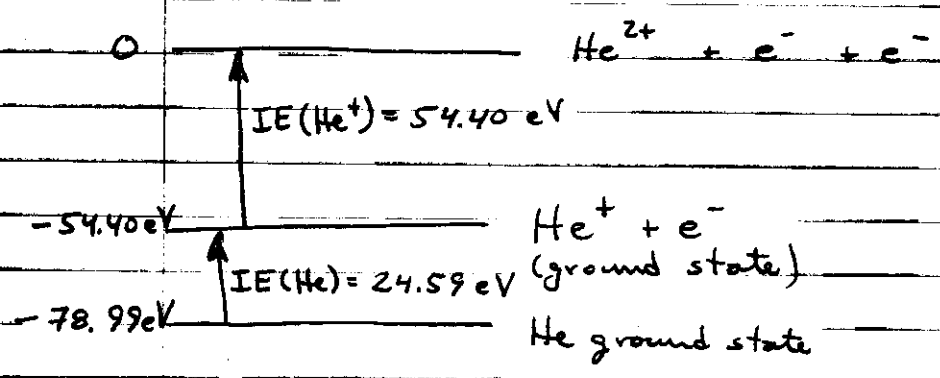 0 He²⁺ + e⁻ + e⁻
IE(He⁺) = 54.40 eV
-54.40 eV He⁺ + e⁻
(ground state)
IE(He) = 24.59 eV
-78.99eV He ground state